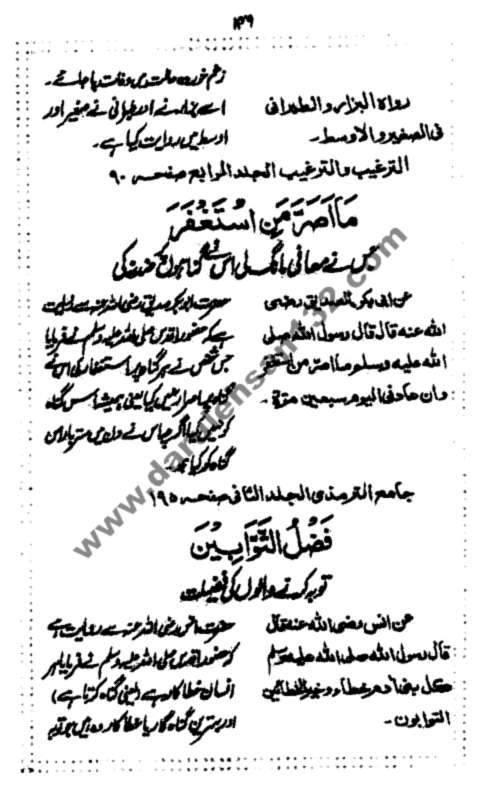 ۱۴۶
رواه البزار والطبرانی
فی الصغیر والاوسط۔
زخم خوردہ حالت میں وفات پا جائے۔
اسے بزار نے اور طبرانی نے صغیر اور
اوسط میں روایت کیا ہے۔
الترغیب والترهیب الجلد الرابع صفحہ ۹۰
مَا اَصَرَّ مَنِ اسْتَغْفَرَ
جس نے معافی مانگ لی اس نے گناہوں پر ضد نہ کی
عن ابی بکر الصدیق رضی
الله عنه قال قال رسول الله صلی
الله علیه وسلم ما اصر من استغفر
وان عاد فی الیوم سبعین مرة۔
حضرت ابوبکر صدیق رضی اللہ عنہ سے روایت
ہے کہ حضور اقدس صلی اللہ علیہ وسلم نے فرمایا
جس شخص نے ہر گناہ پر استغفار کی اس نے
گناہ پر اصرار نہیں کیا یعنی ہمیشہ اس گناہ
کو نہیں کیا اگرچہ اس نے دن میں ستر بار اس
گناہ کو کیا ہو۔
جامع الترمذی الجلد الثانی صفحہ ۱۹۵
فَضْلُ التَّوَّابِیْنَ
توبہ کرنے والوں کی فضیلت
عن انس رضی الله عنه قال
قال رسول الله صلی الله علیه وسلم
کل بنی آدم خطاء وخیر الخطائین
التوابون۔
حضرت انس رضی اللہ عنہ سے روایت ہے
کہ حضور اقدس صلی اللہ علیہ وسلم نے فرمایا ہر
انسان خطا کار ہے (یعنی گناہ کرتا ہے)
اور بہترین گناہ گار یا خطا کار وہ ہیں جو توبہ
www.darulehsan132.com